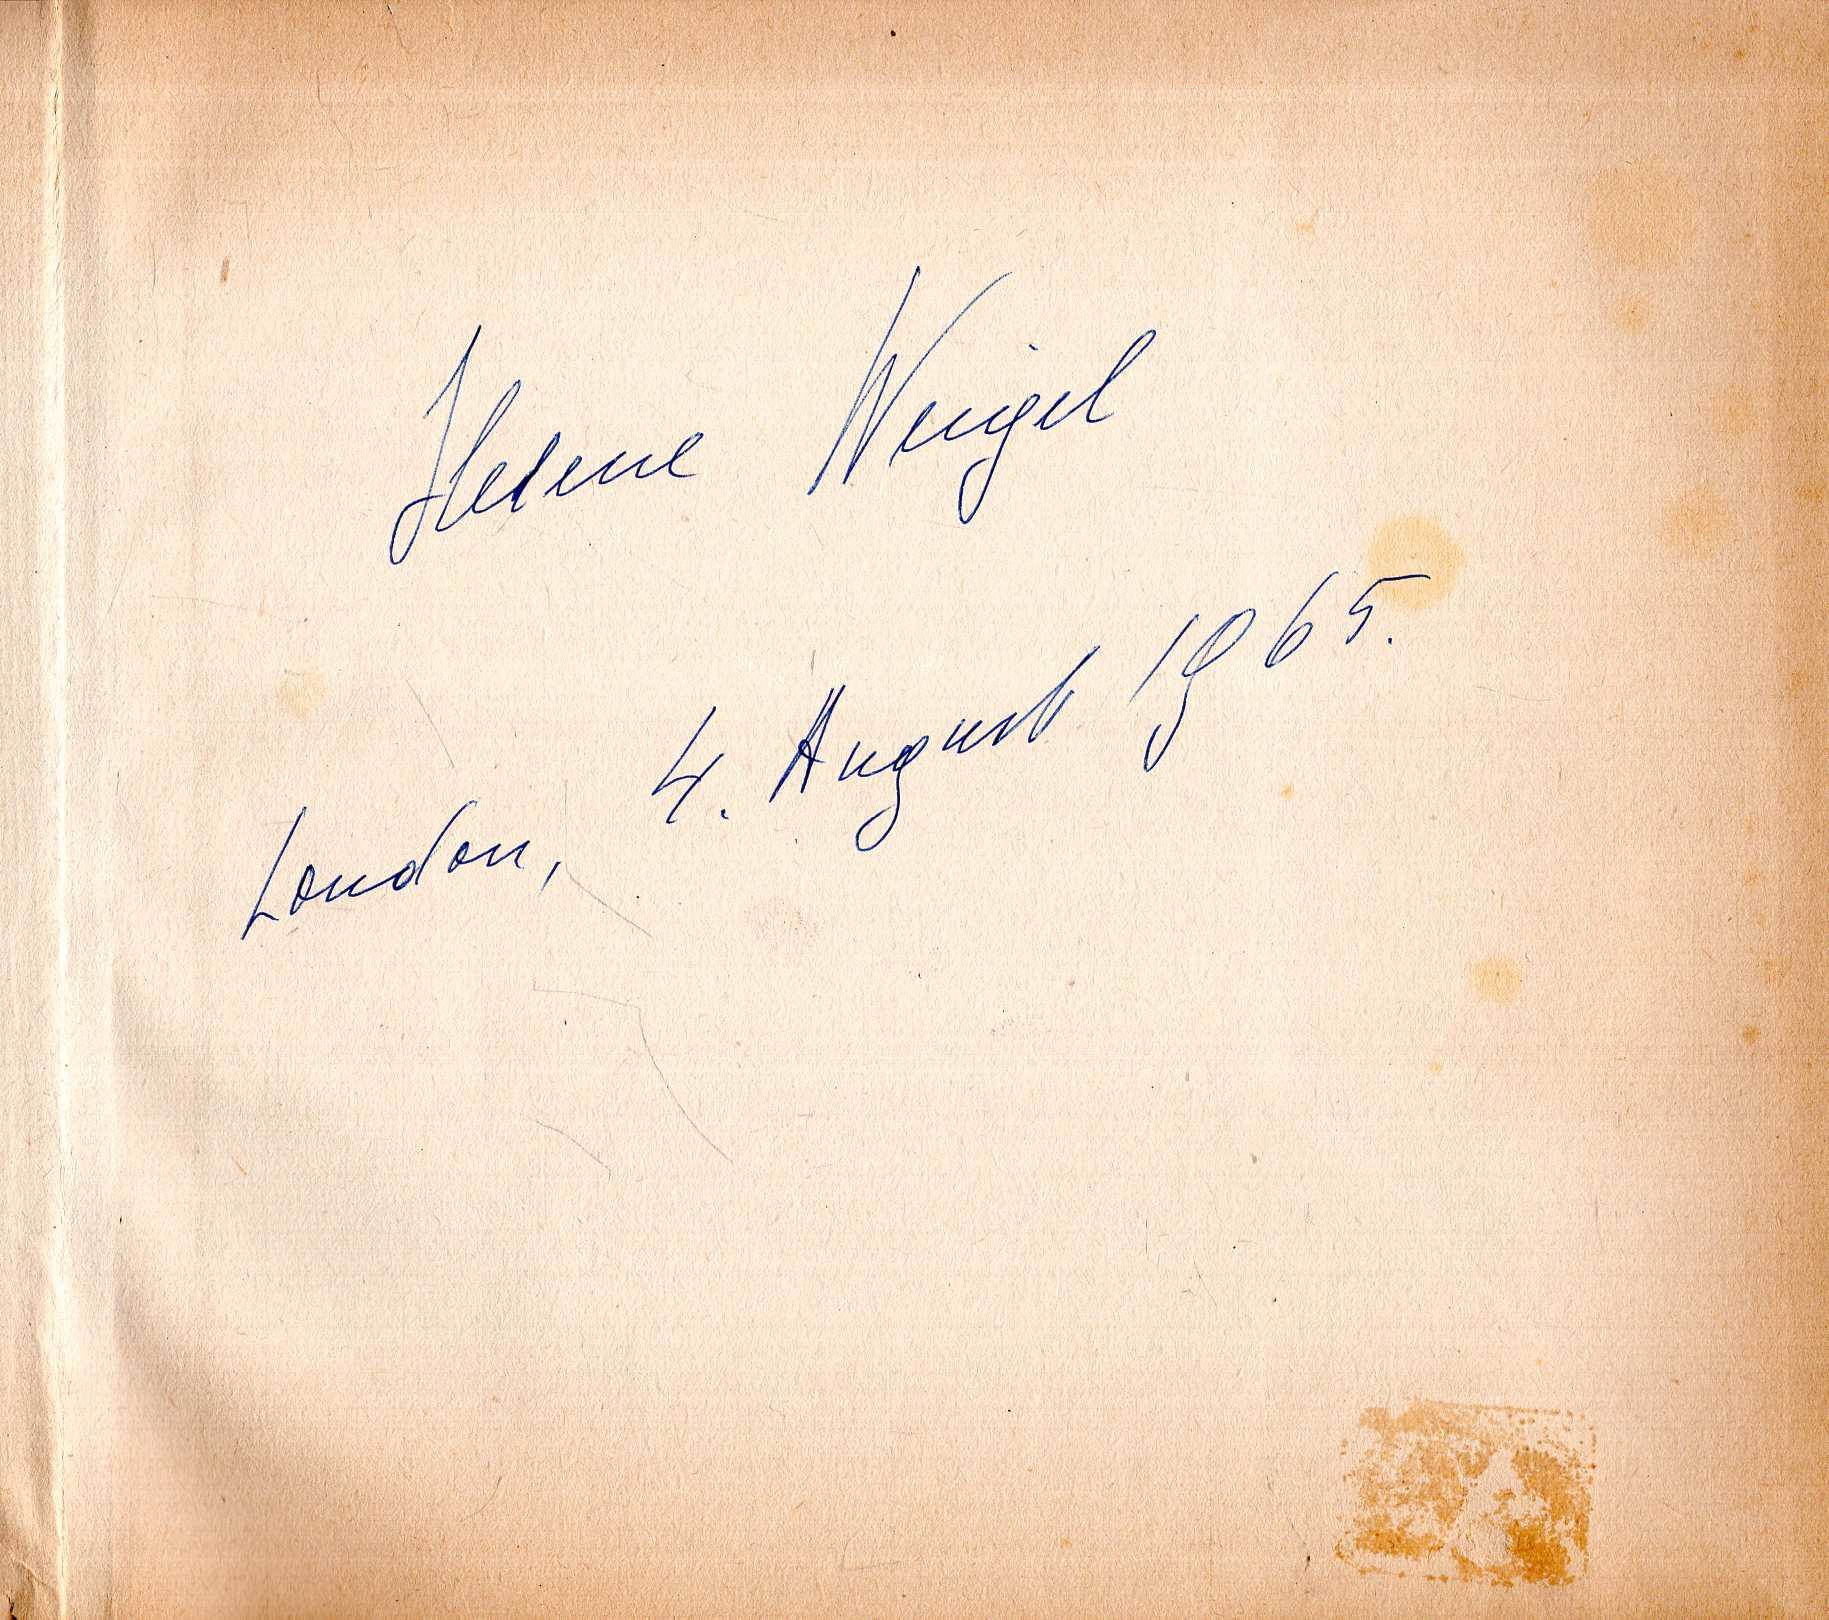 Helene Weigel
London, 4. August 1965.